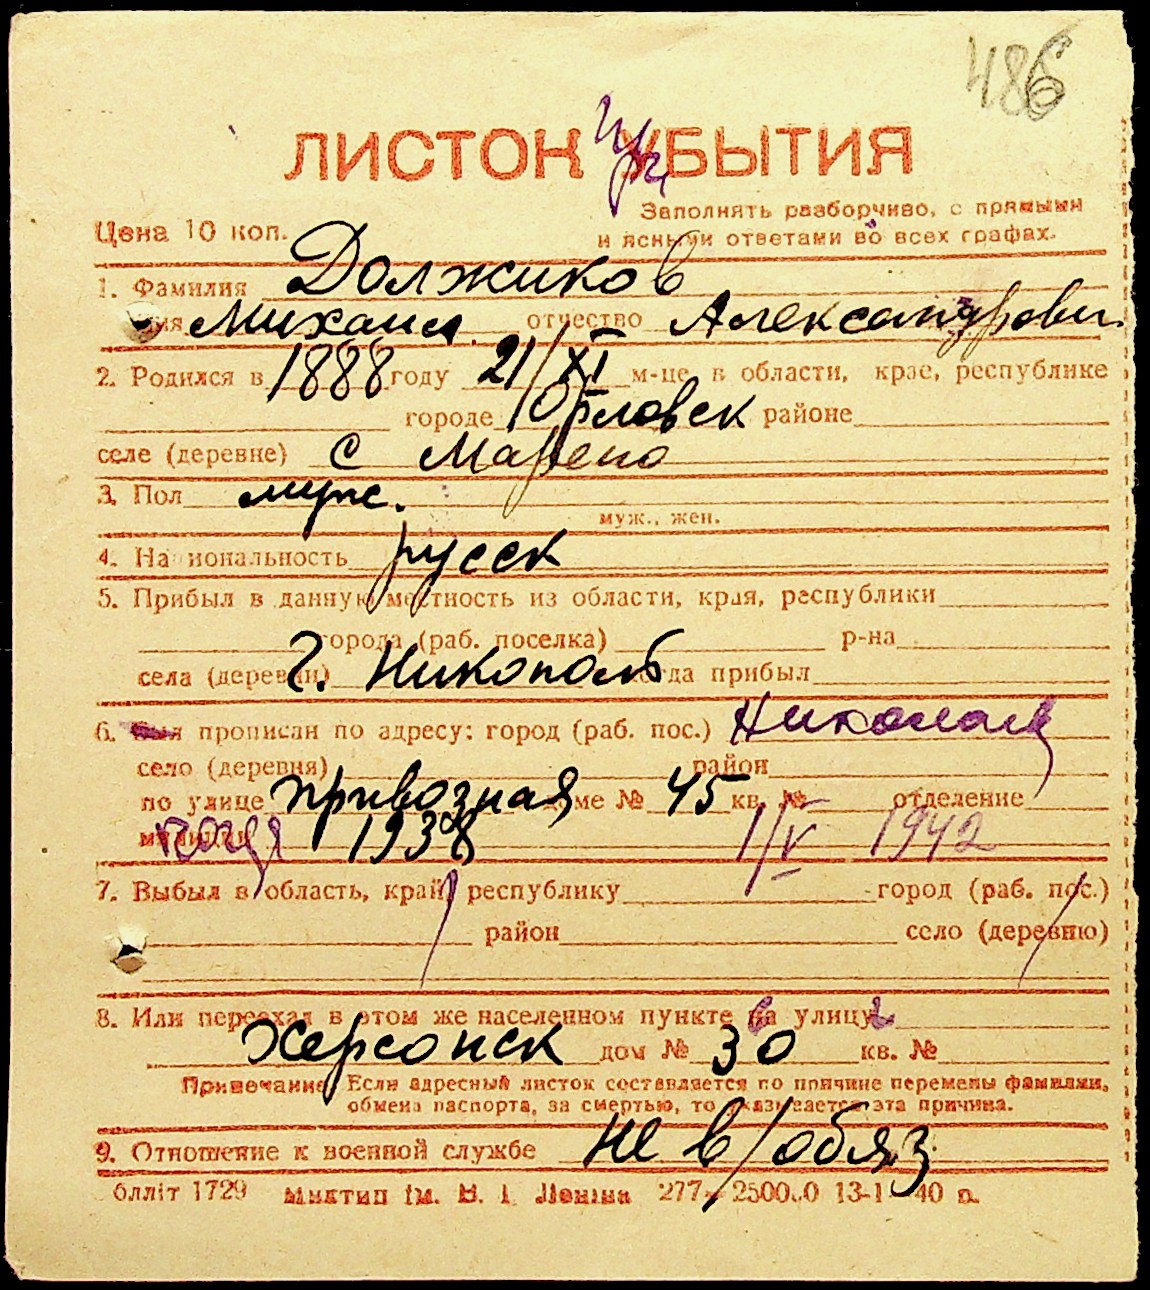 486
ЛИСТОК УБЫТИЯ
При
Заполнять разборчиво, с прямыми
Цена 10 коп.
и ясными ответами во всех графах.
1. Фамилия Должиков
имя Михаил отчество Александрович
2. Родился в 1888 году 21/XI м-це в области, крае, республике
городе Орловск районе
селе (деревне) с
3. Пол муж.
муж., жен.
4. На иональность русск
5. Прибыл в данную местность из области, края, республики
города (раб. поселка) р-на
села (деревни) г. Никополь когда прибыл
6. Был прописан по адресу: город (раб. пос.) Николаев
село (деревня) район
по улице Привозная доме № 45 кв. № отделение
милиции 1938 1/V 1942
7. Выбыл в область, край, республику город (раб. пос.)
район село (деревню)
8. Или переехал в этом же населенном пункте на улицу
Херсонск дом № 30 кв. №
Примечание: Если адресный листок составляется по причине перемены фамилии,
обмена паспорта, за смертью, то указывается эта причина.
9. Отношение к военной службе не в/обяз.
блліт 1729 Миктип ім. В. І. Леніна 277— 250000 13-1 40 р.